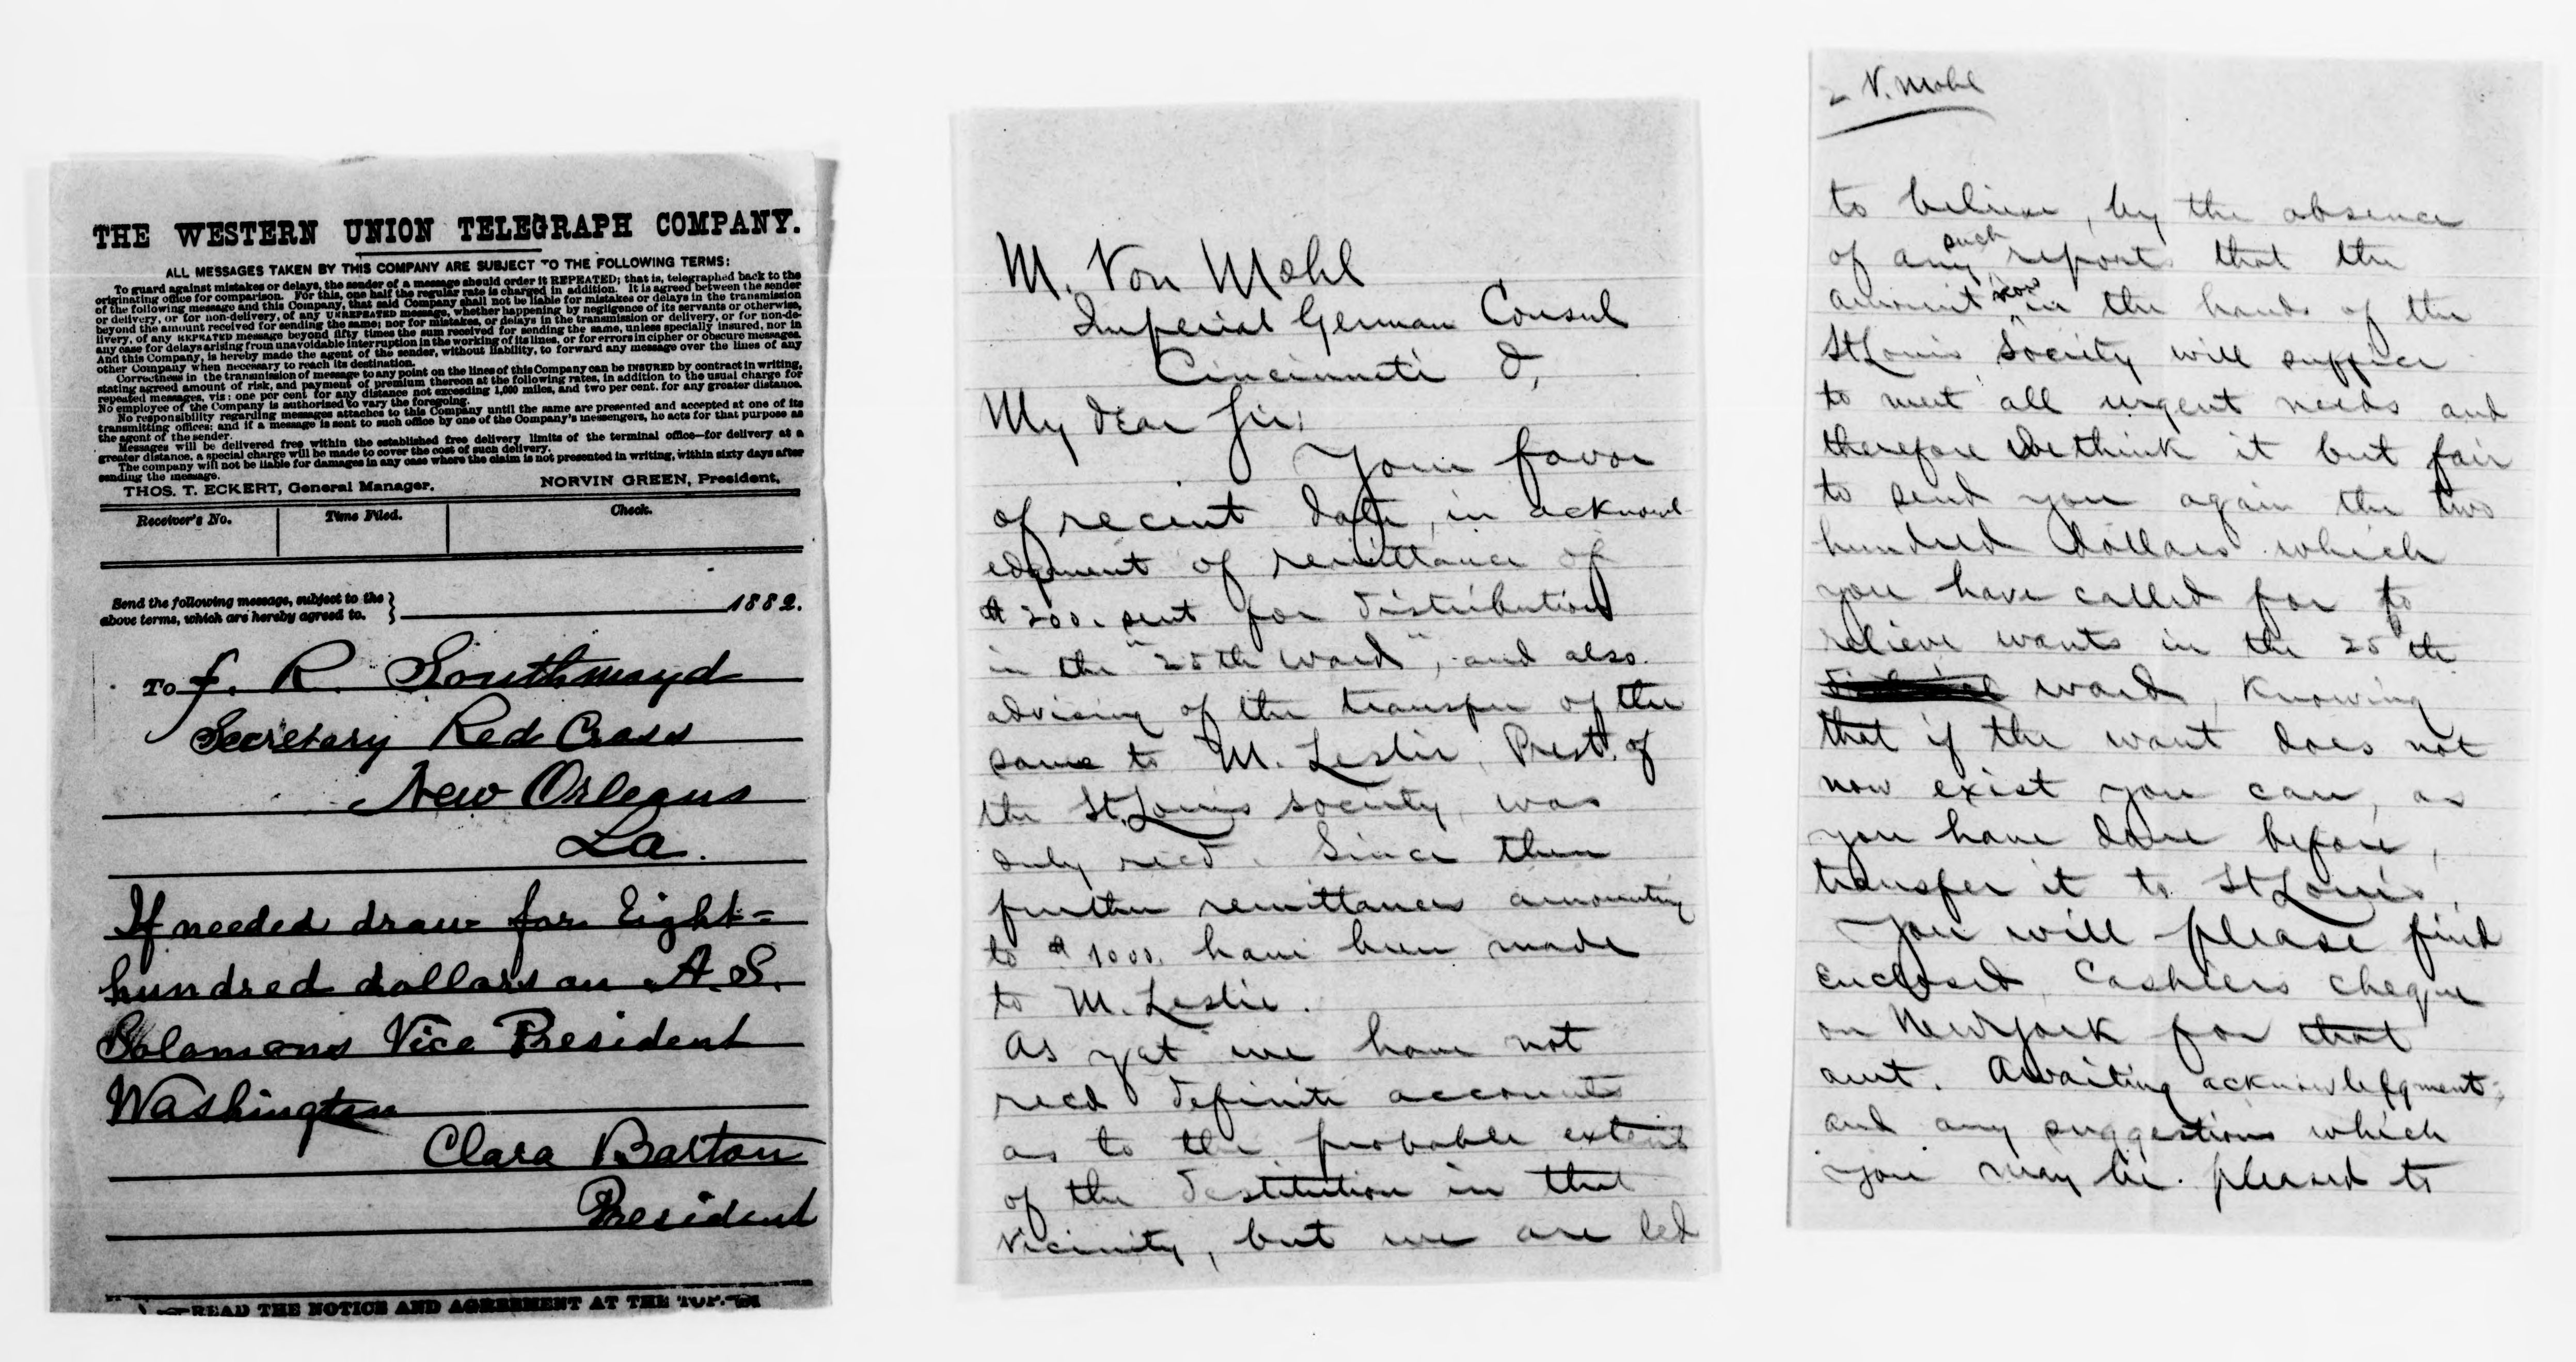 THE WESTERN UNION TELEGRAPH COMPANY.
ALL MESSAGES TAKEN BY THIS COMPANY ARE SUBJECT TO THE FOLLOWING TERMS:
To guard against mistakes or delays, the sender of a message should order it REPEATED; that is, telegraphed back to the
originating office for comparison. For this, one half the regular rate is charged in addition. It is agreed between the sender
of the following message and this Company, that said Company shall not be liable for mistakes or delays in the transmission
or delivery, or for non-delivery, of any UNREPEATED message, whether happening by negligence of its servants or otherwise,
beyond the amount received for sending the same; nor for mistakes, or delays in the transmission or delivery, or for non-de-
livery, of any REPEATED message beyond fifty times the sum received for sending the same, unless specially insured, nor in
any case for delays arising from unavoidable interruption in the working of its lines, or for errors in cipher or obscure messages.
And this Company, is hereby made the agent of the sender, without liability, to forward any message over the lines of any
other Company when necessary to reach its destination.
Correctness in the transmission of message to any point on the lines of this Company can be INSURED by contract in writing,
stating agreed amount of risk, and payment of premium thereon at the following rates, in addition to the usual charge for
repeated messages, viz: one per cent for any distance not exceeding 1,000 miles, and two per cent. for any greater distance.
No employee of the Company is authorized to vary the foregoing.
No responsibility regarding messages attaches to this Company until the same are presented and accepted at one of its
transmitting offices; and if a message is sent to such office by one of the Company's messengers, he acts for that purpose as
the agent of the sender.
Messages will be delivered free within the established free delivery limits of the terminal office—for delivery at a
greater distance, a special charge will be made to cover the cost of such delivery.
The company will not be liable for damages in any case where the claim is not presented in writing, within sixty days after
sending the message.
THOS. T. ECKERT, General Manager. NORVIN GREEN, President.
Receiver's No. Time Filed. Check.
Send the following message, subject to the
above terms, which are hereby agreed to. 1882.
To J. R. Southmayd
Secretary Red Cross
New Orleans
La.
If needed draw for Eight=
hundred dollars on A. S.
Solomons Vice President
Washington
Clara Barton
President
READ THE NOTICE AND AGREEMENT AT THE TOP.
M. Von Mohl
Imperial German Consul
Cincinnati O,
My Dear Sir:
Your favor
of recent date, in acknowl
edgment of remittance of
$200. sent for distribution
in the "25th Ward", and also
advising of the transfer of the
same to M. Leslie, Prest. of
the St. Louis society, was
duly recd. Since then
further remittances amounting
to $1000. have been made
to M. Leslie.
As yet we have not
recd definite accounts
as to the probable extent
of the destitution in that
vicinity, but we are led
2 V. Mohl
to believe, by the absence
of any such reports that the
amount now in the hands of the
St Louis Society will suffice
to meet all urgent needs and
therefore we think it but fair
to send you again the two
hundred dollars which
you have called for to
relieve wants in the 25th
ward, knowing
that if the want does not
now exist you can, as
you have done before,
transfer it to St Louis,
You will please find
enclosed, Cashiers cheque
on New York for that
amt. Awaiting acknowledgment,
and any suggestions which
you may be pleased to